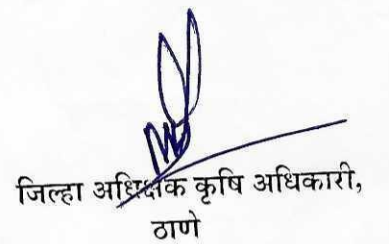 जिल्हा अधिक्षक कृषि अधिकारी,
ठाणे